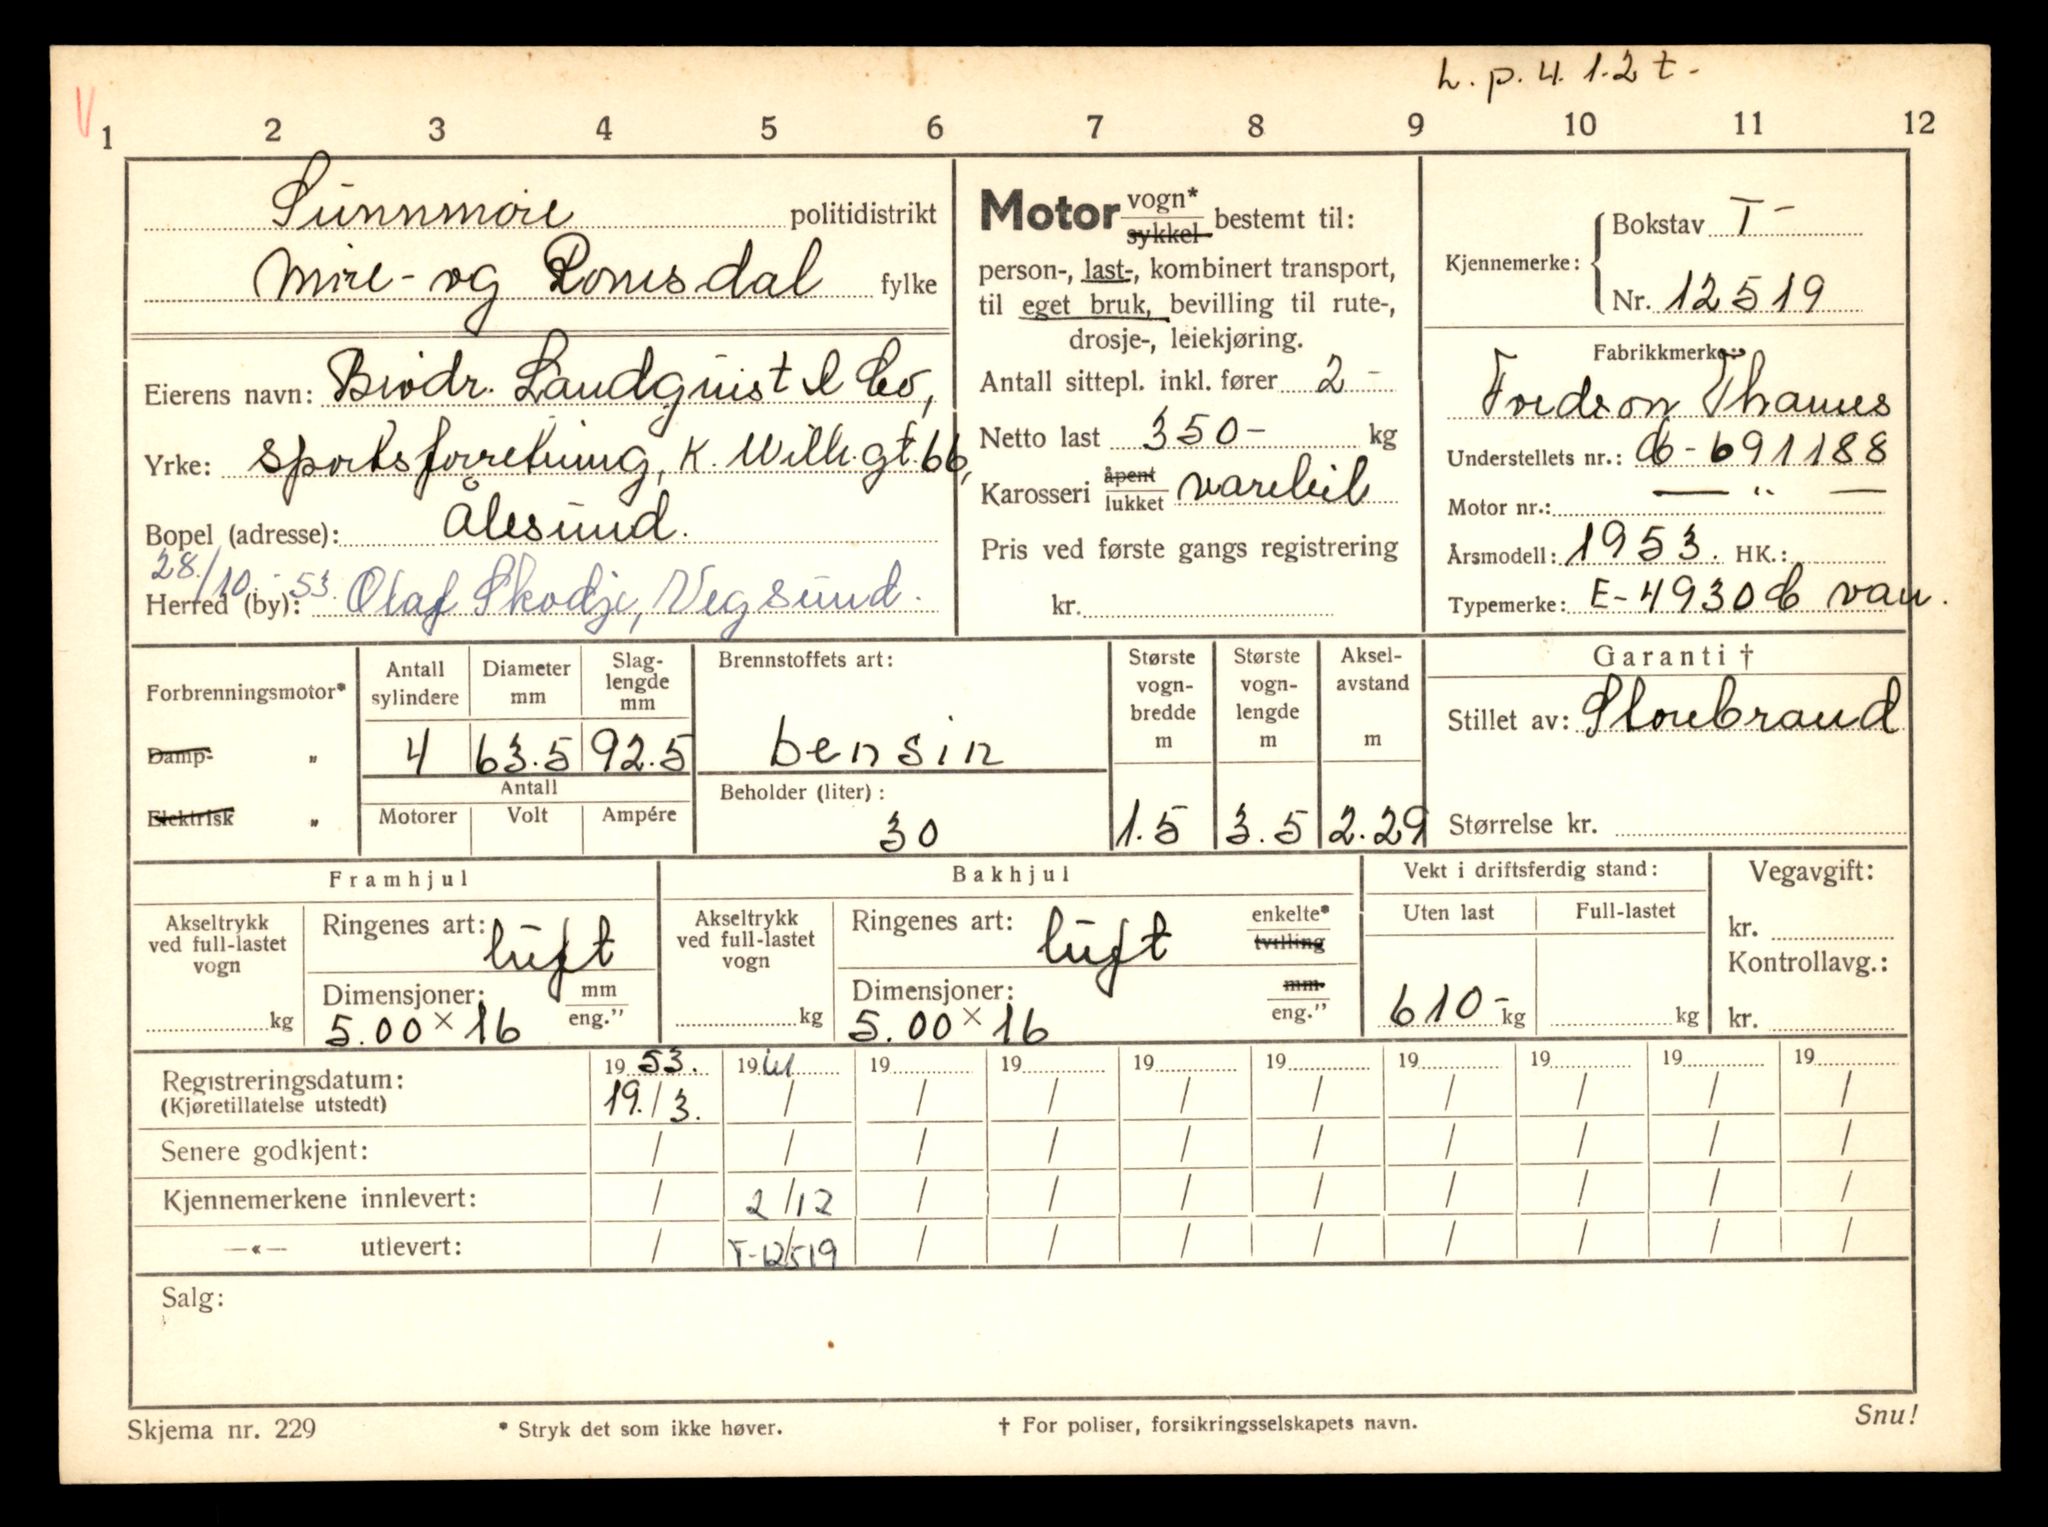 h. p. 4. 1.2 t -
V
1 2 3 4 5 6 7 8 9 10 11 12
Sunnmøre politidistrikt
Møre- og Romsdal fylke
Eierens navn: Brødr. Landquist & Co,
Yrke: sportsforretning, K. Wilh.gt. 66,
Bopel (adresse): Ålesund.
28./10. - 53
Herred (by): Olaf Skodje, Vegsund.
Motor vogn* sykkel bestemt til:
person-, last-, kombinert transport,
til eget bruk, bevilling til rute-,
drosje-, leiekjøring.
Antall sittepl. inkl. fører 2 -
Netto last 350- kg
Karosseri åpent lukket varebil
Pris ved første gangs registrering
kr.
Kjennemerke: Bokstav T-
Nr. 12519
Fabrikkmerke:
Fordson Thames
Understellets nr.: C-691188
Motor nr.: — " —
Årsmodell: 1953. HK.:
Typemerke: E-4930 C van.
Forbrenningsmotor*
Damp- "
Elektrisk "
Antall sylindere 4
Diameter mm 63.5
Slag-lengde mm 92.5
Antall
Motorer Volt Ampére
Brennstoffets art:
bensin
Beholder (liter):
30
Største vogn-bredde m 1.5
Største vogn-lengde m 3.5
Aksel-avstand m 2.29
Garanti †
Stillet av: Storebrand
Størrelse kr.
Framhjul
Akseltrykk ved full-lastet vogn
kg
Ringenes art: luft
Dimensjoner: mm eng."
5.00 × 16
Bakhjul
Akseltrykk ved full-lastet vogn
kg
Ringenes art: luft enkelte* tvilling
Dimensjoner: mm eng."
5.00 × 16
Vekt i driftsferdig stand:
Uten last Full-lastet
610- kg kg
Vegavgift:
kr.
Kontrollavg.:
kr.
Registreringsdatum: 19 53. 19 61 19 19 19 19 19 19 19 19
(Kjøretillatelse utstedt) 19./3. / / / / / / / / /
Senere godkjent: / / / / / / / / / /
Kjennemerkene innlevert: / 2/12 / / / / / / / /
—«— utlevert: / T-12519 / / / / / / / /
Salg:
Skjema nr. 229 * Stryk det som ikke høver. † For poliser, forsikringsselskapets navn. Snu!